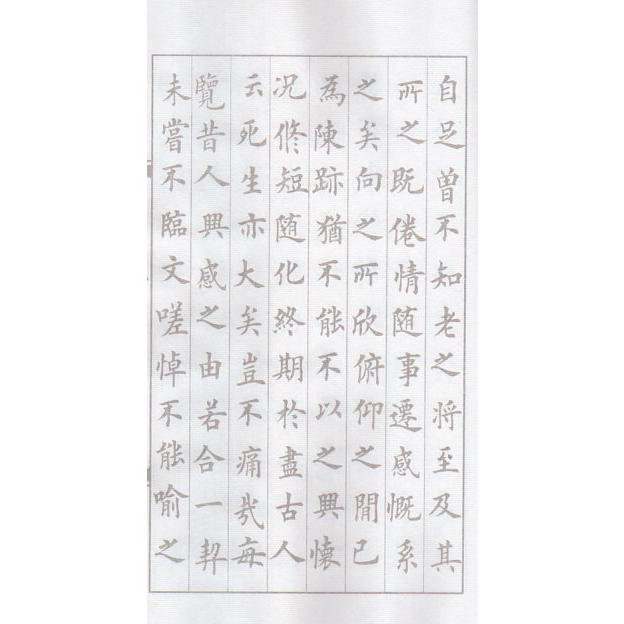 自足曽不知老之将至及其
所之既倦情随事遷感慨系
之矣向之所欣俯仰之間已
為陳跡猶不能不以之興懷
况修短随化終期於盡古人
云死生亦大矣豈不痛哉每
覽昔人興感之由若合一契
未嘗不臨文嗟悼不能喻之